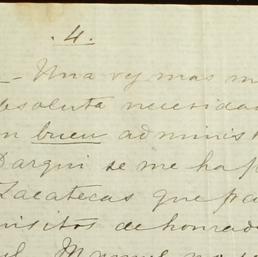 . 4 .
- Una vez mas m
absoluta necesidad
n buen adminis
Darqui se me ha p
Zacatecas que pa
uisitos de honrad